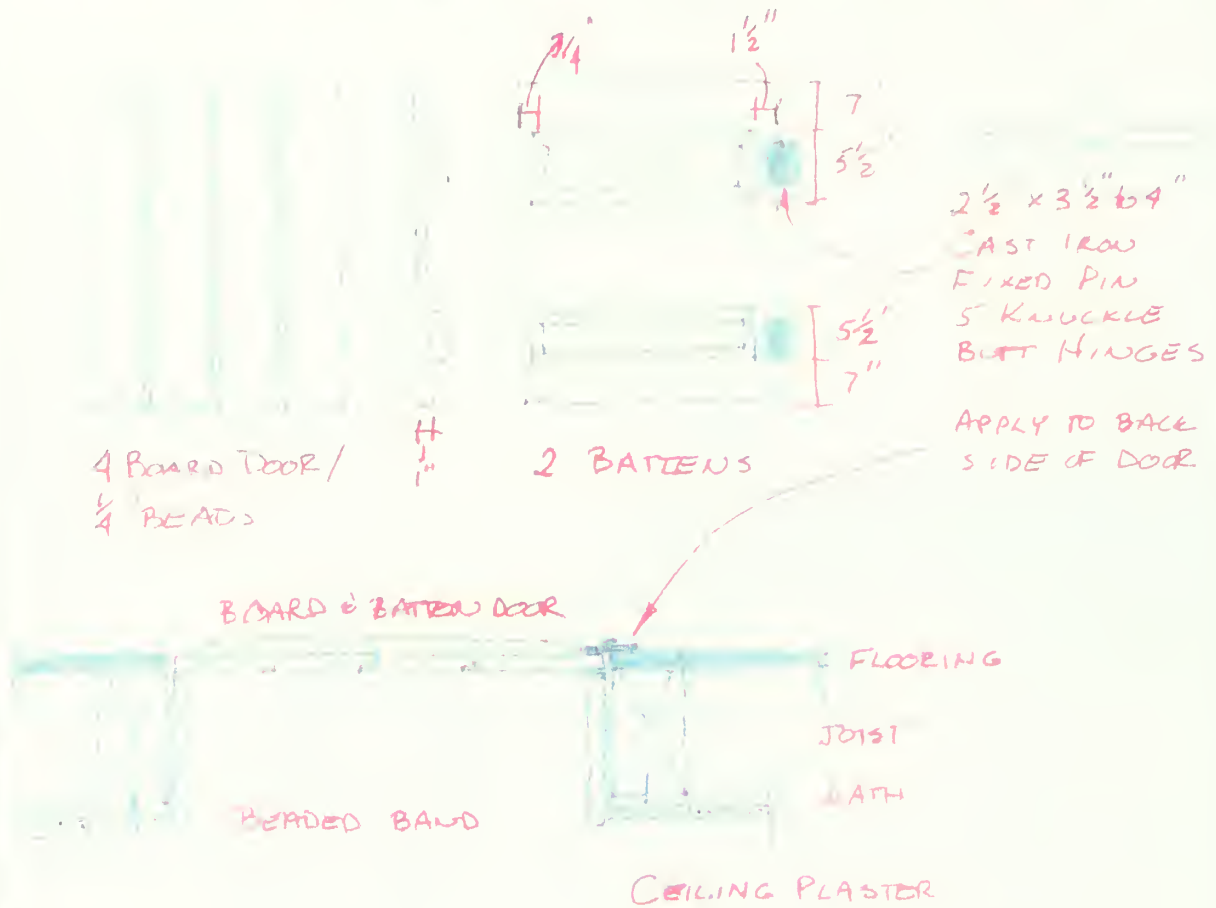 3/4"
1 1/2"
7
5 1/2
2 1/2 x 3 1/2" to 4"
CAST IRON
FIXED PIN
5 KNUCKLE
BUTT HINGES
5 1/2"
7"
APPLY TO BACK
SIDE OF DOOR
4 BOARD DOOR/
1/4 BEADS
1"
2 BATTENS
BOARD & BATTEN DOOR
FLOORING
JOIST
LATH
BEADED BAND
CEILING PLASTER